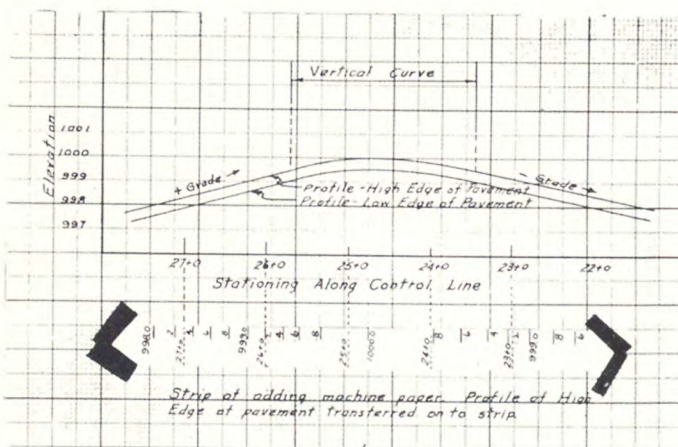 Vertical Curve
Elevation
1001
1000
999
998
997
+ Grade
- Grade
Profile-High Edge of Pavement
Profile-Low Edge of Pavement
27+0 26+0 25+0 24+0 23+0 22+0
Stationing Along Control Line
998.0 2 4 6 8 999.0 2 4 6 8 1000.0 8 6 4 2 999.0 8 6
27+0 26+0 25+0 24+0 23+0
Strip of adding machine paper. Profile of High
Edge of pavement transferred on to strip.